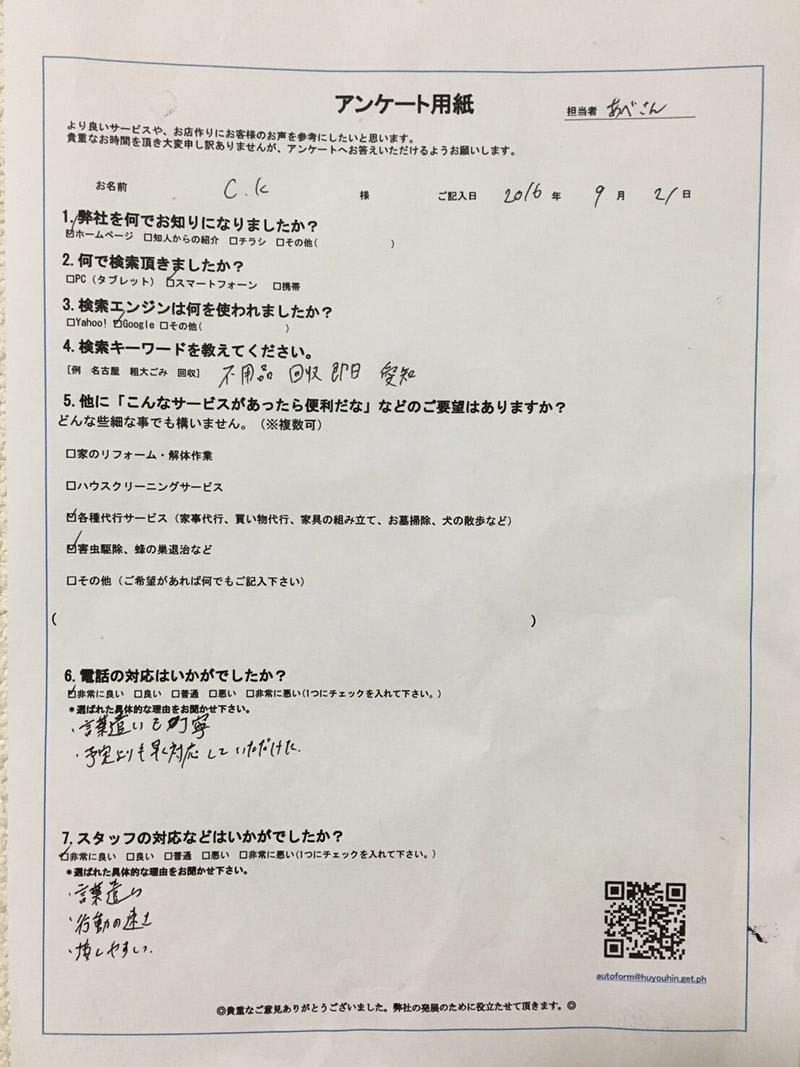 アンケート用紙
担当者 あべさん
より良いサービスや、お店作りにお客様のお声を参考にしたいと思います。
貴重なお時間を頂き大変申し訳ありませんが、アンケートへお答えいただけるようお願いします。
お名前 C.K 様 ご記入日 2016 年 9 月 21 日
1.弊社を何でお知りになりましたか？
☑ホームページ □知人からの紹介 □チラシ □その他( )
2.何で検索頂きましたか？
□PC（タブレット） ☑スマートフォーン □携帯
3.検索エンジンは何を使われましたか？
□Yahoo! ☑Google □その他( )
4.検索キーワードを教えてください。
[例 名古屋 粗大ごみ 回収] 不用品 回収 即日 愛知
5.他に「こんなサービスがあったら便利だな」などのご要望はありますか？
どんな些細な事でも構いません。（※複数可）
□家のリフォーム・解体作業
□ハウスクリーニングサービス
☑各種代行サービス（家事代行、買い物代行、家具の組み立て、お墓掃除、犬の散歩など）
☑害虫駆除、蜂の巣退治など
□その他（ご希望があれば何でもご記入下さい）
( )
6.電話の対応はいかがでしたか？
☑非常に良い □良い □普通 □悪い □非常に悪い(1つにチェックを入れて下さい。)
＊選ばれた具体的な理由をお聞かせ下さい。
・言葉遣いも丁寧
・予定よりも早く対応していただけた.
7.スタッフの対応などはいかがでしたか？
☑非常に良い □良い □普通 □悪い □非常に悪い(1つにチェックを入れて下さい。)
＊選ばれた具体的な理由をお聞かせ下さい。
・言葉遣い
・行動の速さ
・接しやすい.
autoform@huyouhin.get.ph
◎貴重なご意見ありがとうございました。弊社の発展のために役立たせて頂きます。◎